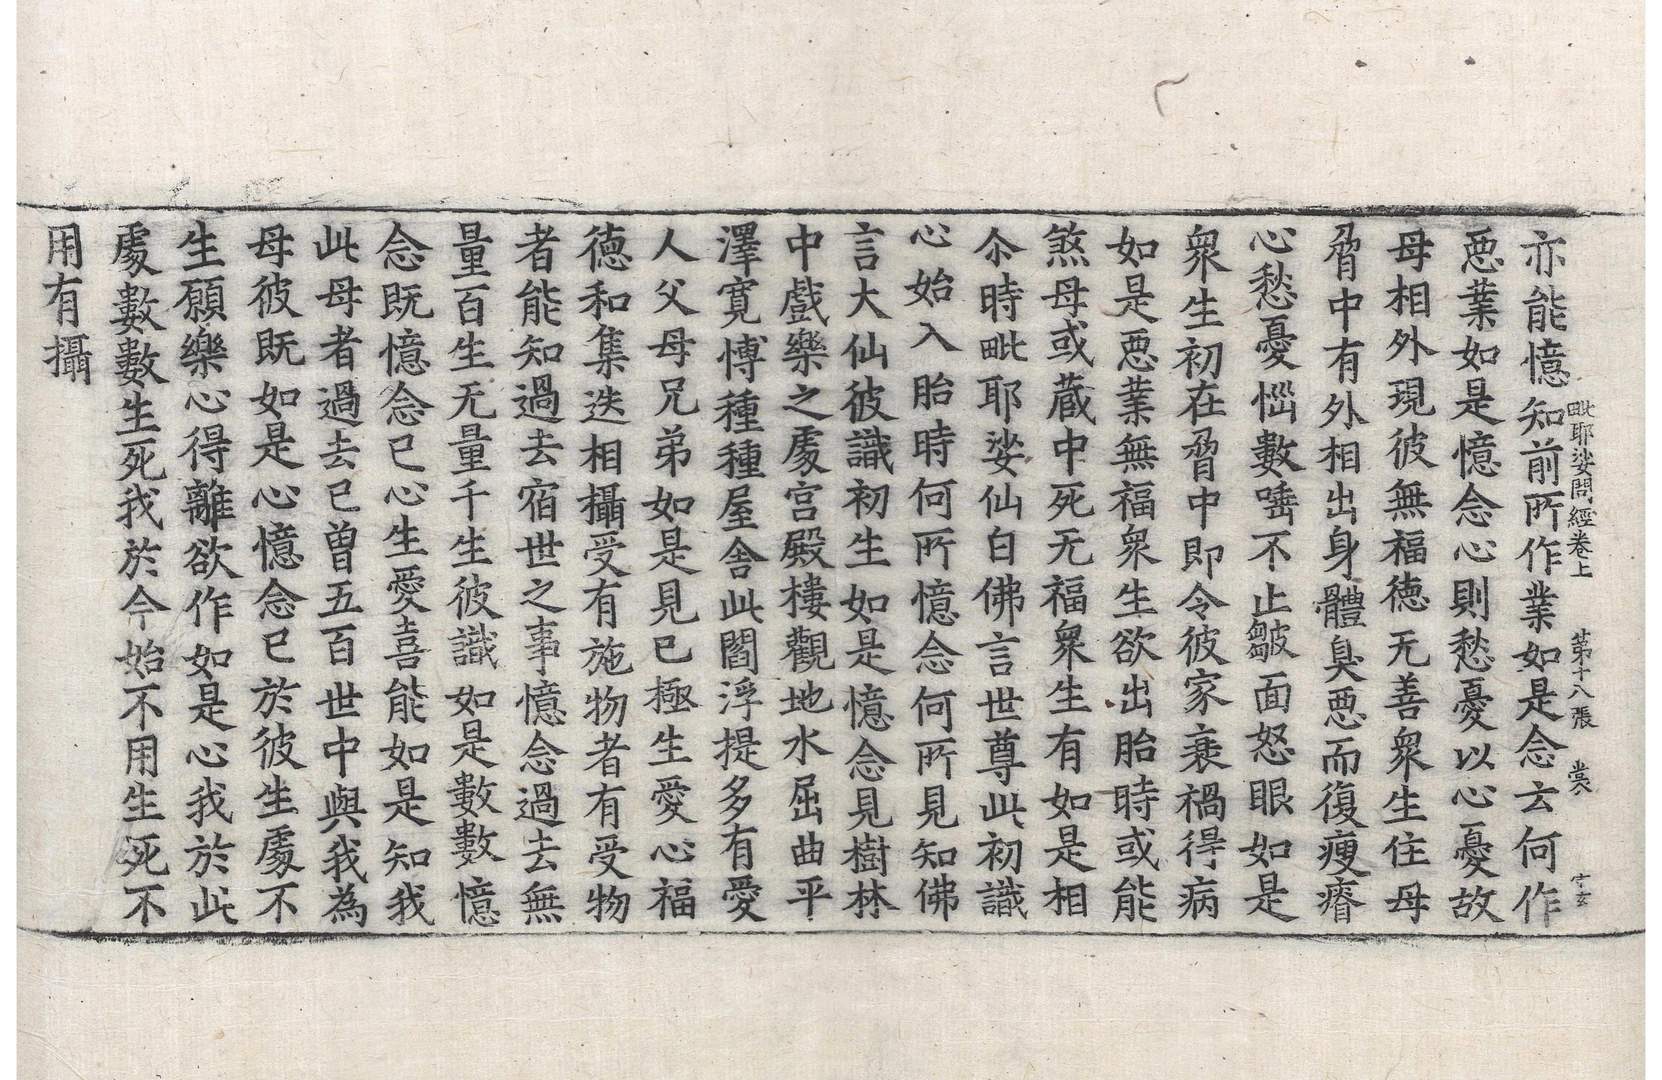 毗耶娑問經卷上　第十八張　裳　
亦能憶知前所作業如是念云何作
惡業如是憶念心則愁憂以心憂故
母相外現彼無福徳无善衆生住母
𦚾中有外相出身體臭惡而復瘦瘠
心愁憂惱數唾不止皺面怒眼如是
衆生初在𦚾中即令彼家衰禍得病
如是惡業無福衆生欲出胎時或能
煞母或蔵中死无福衆生有如是相
尒時毗耶娑仙白佛言世尊此初識
心始入胎時何所憶念何所見知佛
言大仙彼識初生如是憶念見樹林
中戲樂之處宮殿樓觀地水屈曲平
澤寬博種種屋舍此閻浮提多有愛
人父母兄弟如是見已極生愛心福
德和集迭相攝受有施物者有受物
者能知過去宿世之事憶念過去無
量百生无量千生彼識如是數數憶
念既憶念已心生愛喜能如是知我
此母者過去已曽五百世中與我為
母彼既如是心憶念已於彼生處不
生願樂心得離欲作如是心我於此
處數數生死我於今始不用生死不
用有攝